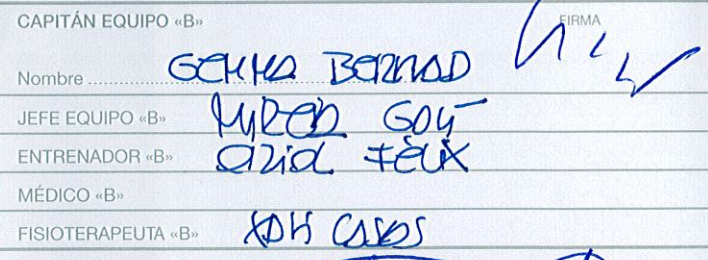 CAPITÁN EQUIPO «B» FIRMA
Nombre GEMMA BERNAD
JEFE EQUIPO «B» MIREIA GOY
ENTRENADOR «B» ORIOL FÈLIX
MÉDICO «B»
FISIOTERAPEUTA «B» XON CASAS